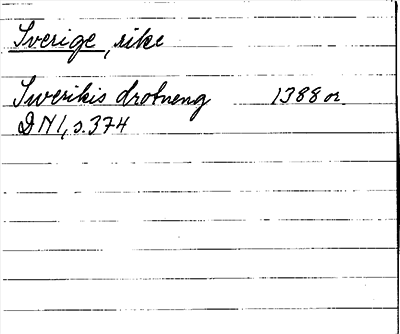 Sverige, rike
Swerikis drotneng 1388 or.
DN I, s. 374